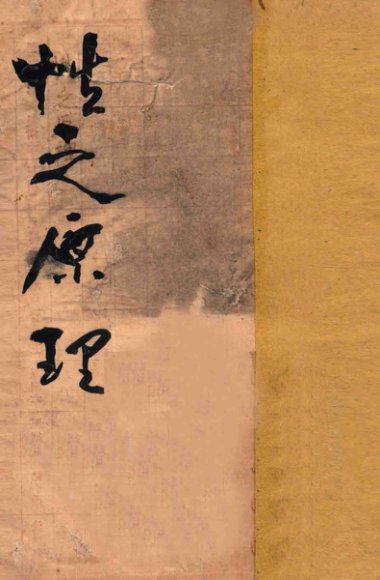 性之原理